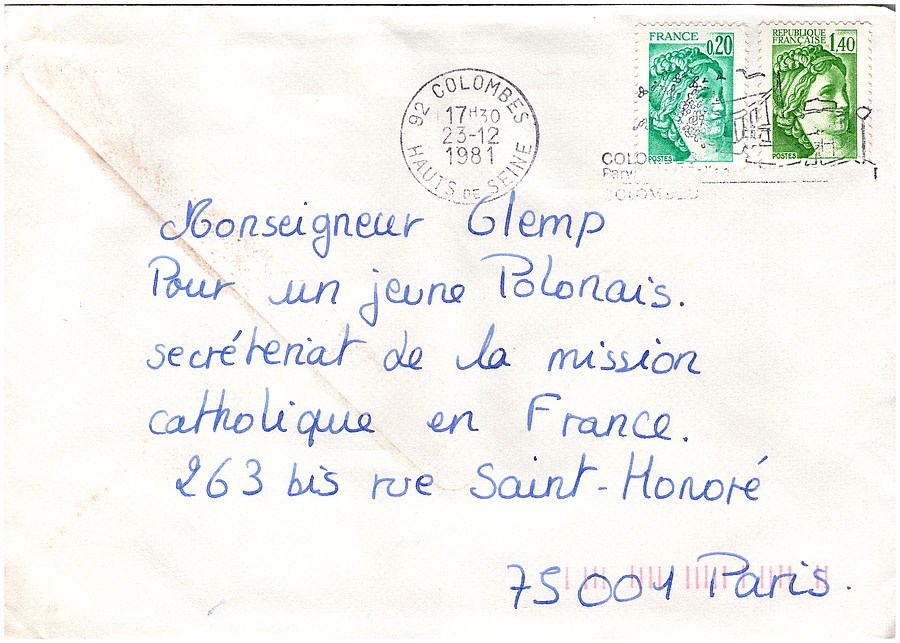 FRANCE 0,20
POSTES
REPUBLIQUE
FRANÇAISE 1,40
POSTES
92 COLOMBES
17H30
23-12
1981
HAUTS DE SEINE
Monseigneur Glemp
Pour un jeune Polonais.
secréteriat de la mission
catholique en France.
263 bis rue Saint-Honoré
75001 Paris.